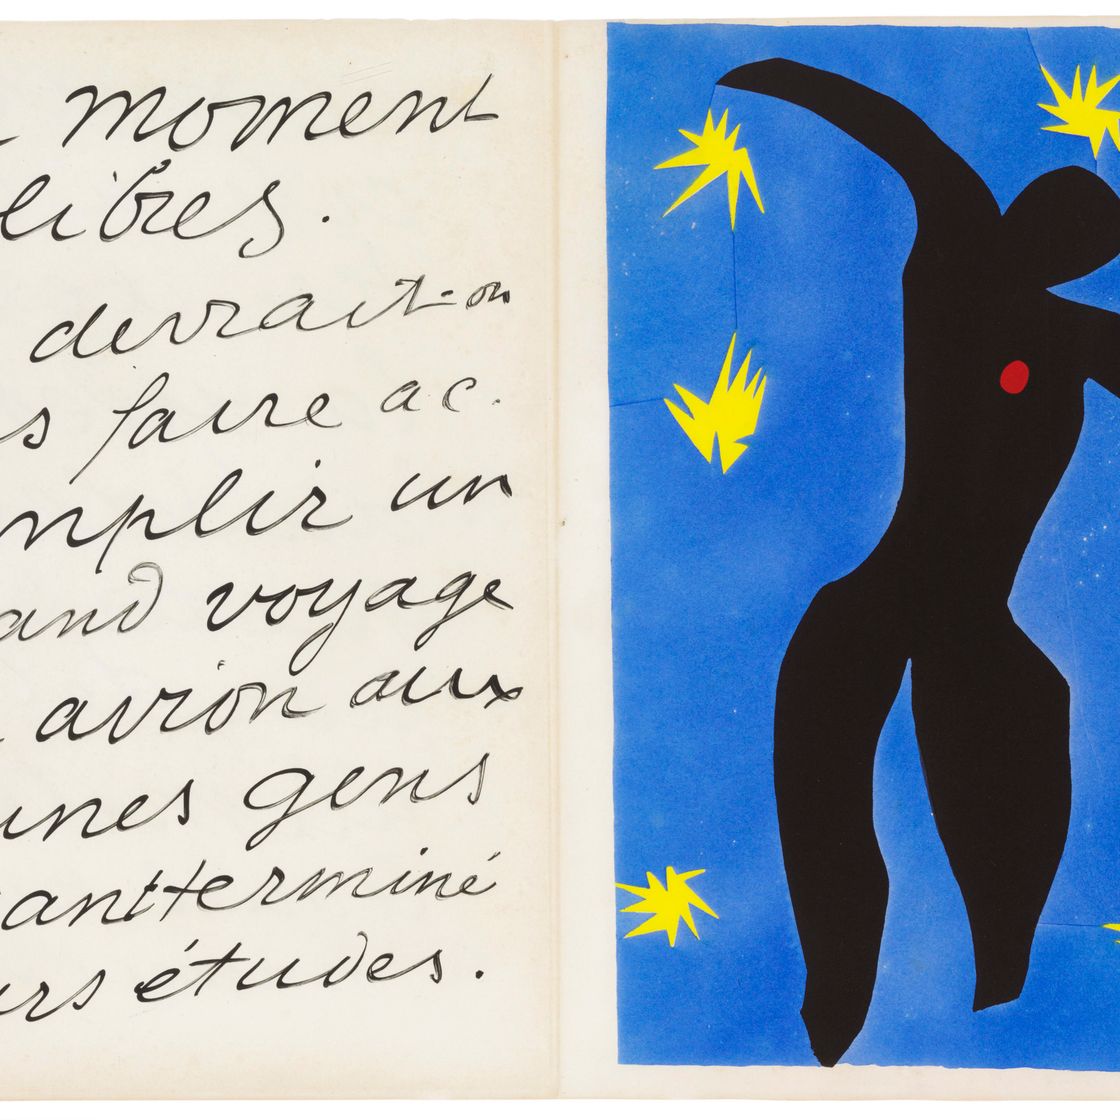 moment
libres.
devrait-on
s faire ac-
mplir un
and voyage
avion aux
unes gens
ant terminé
urs études.